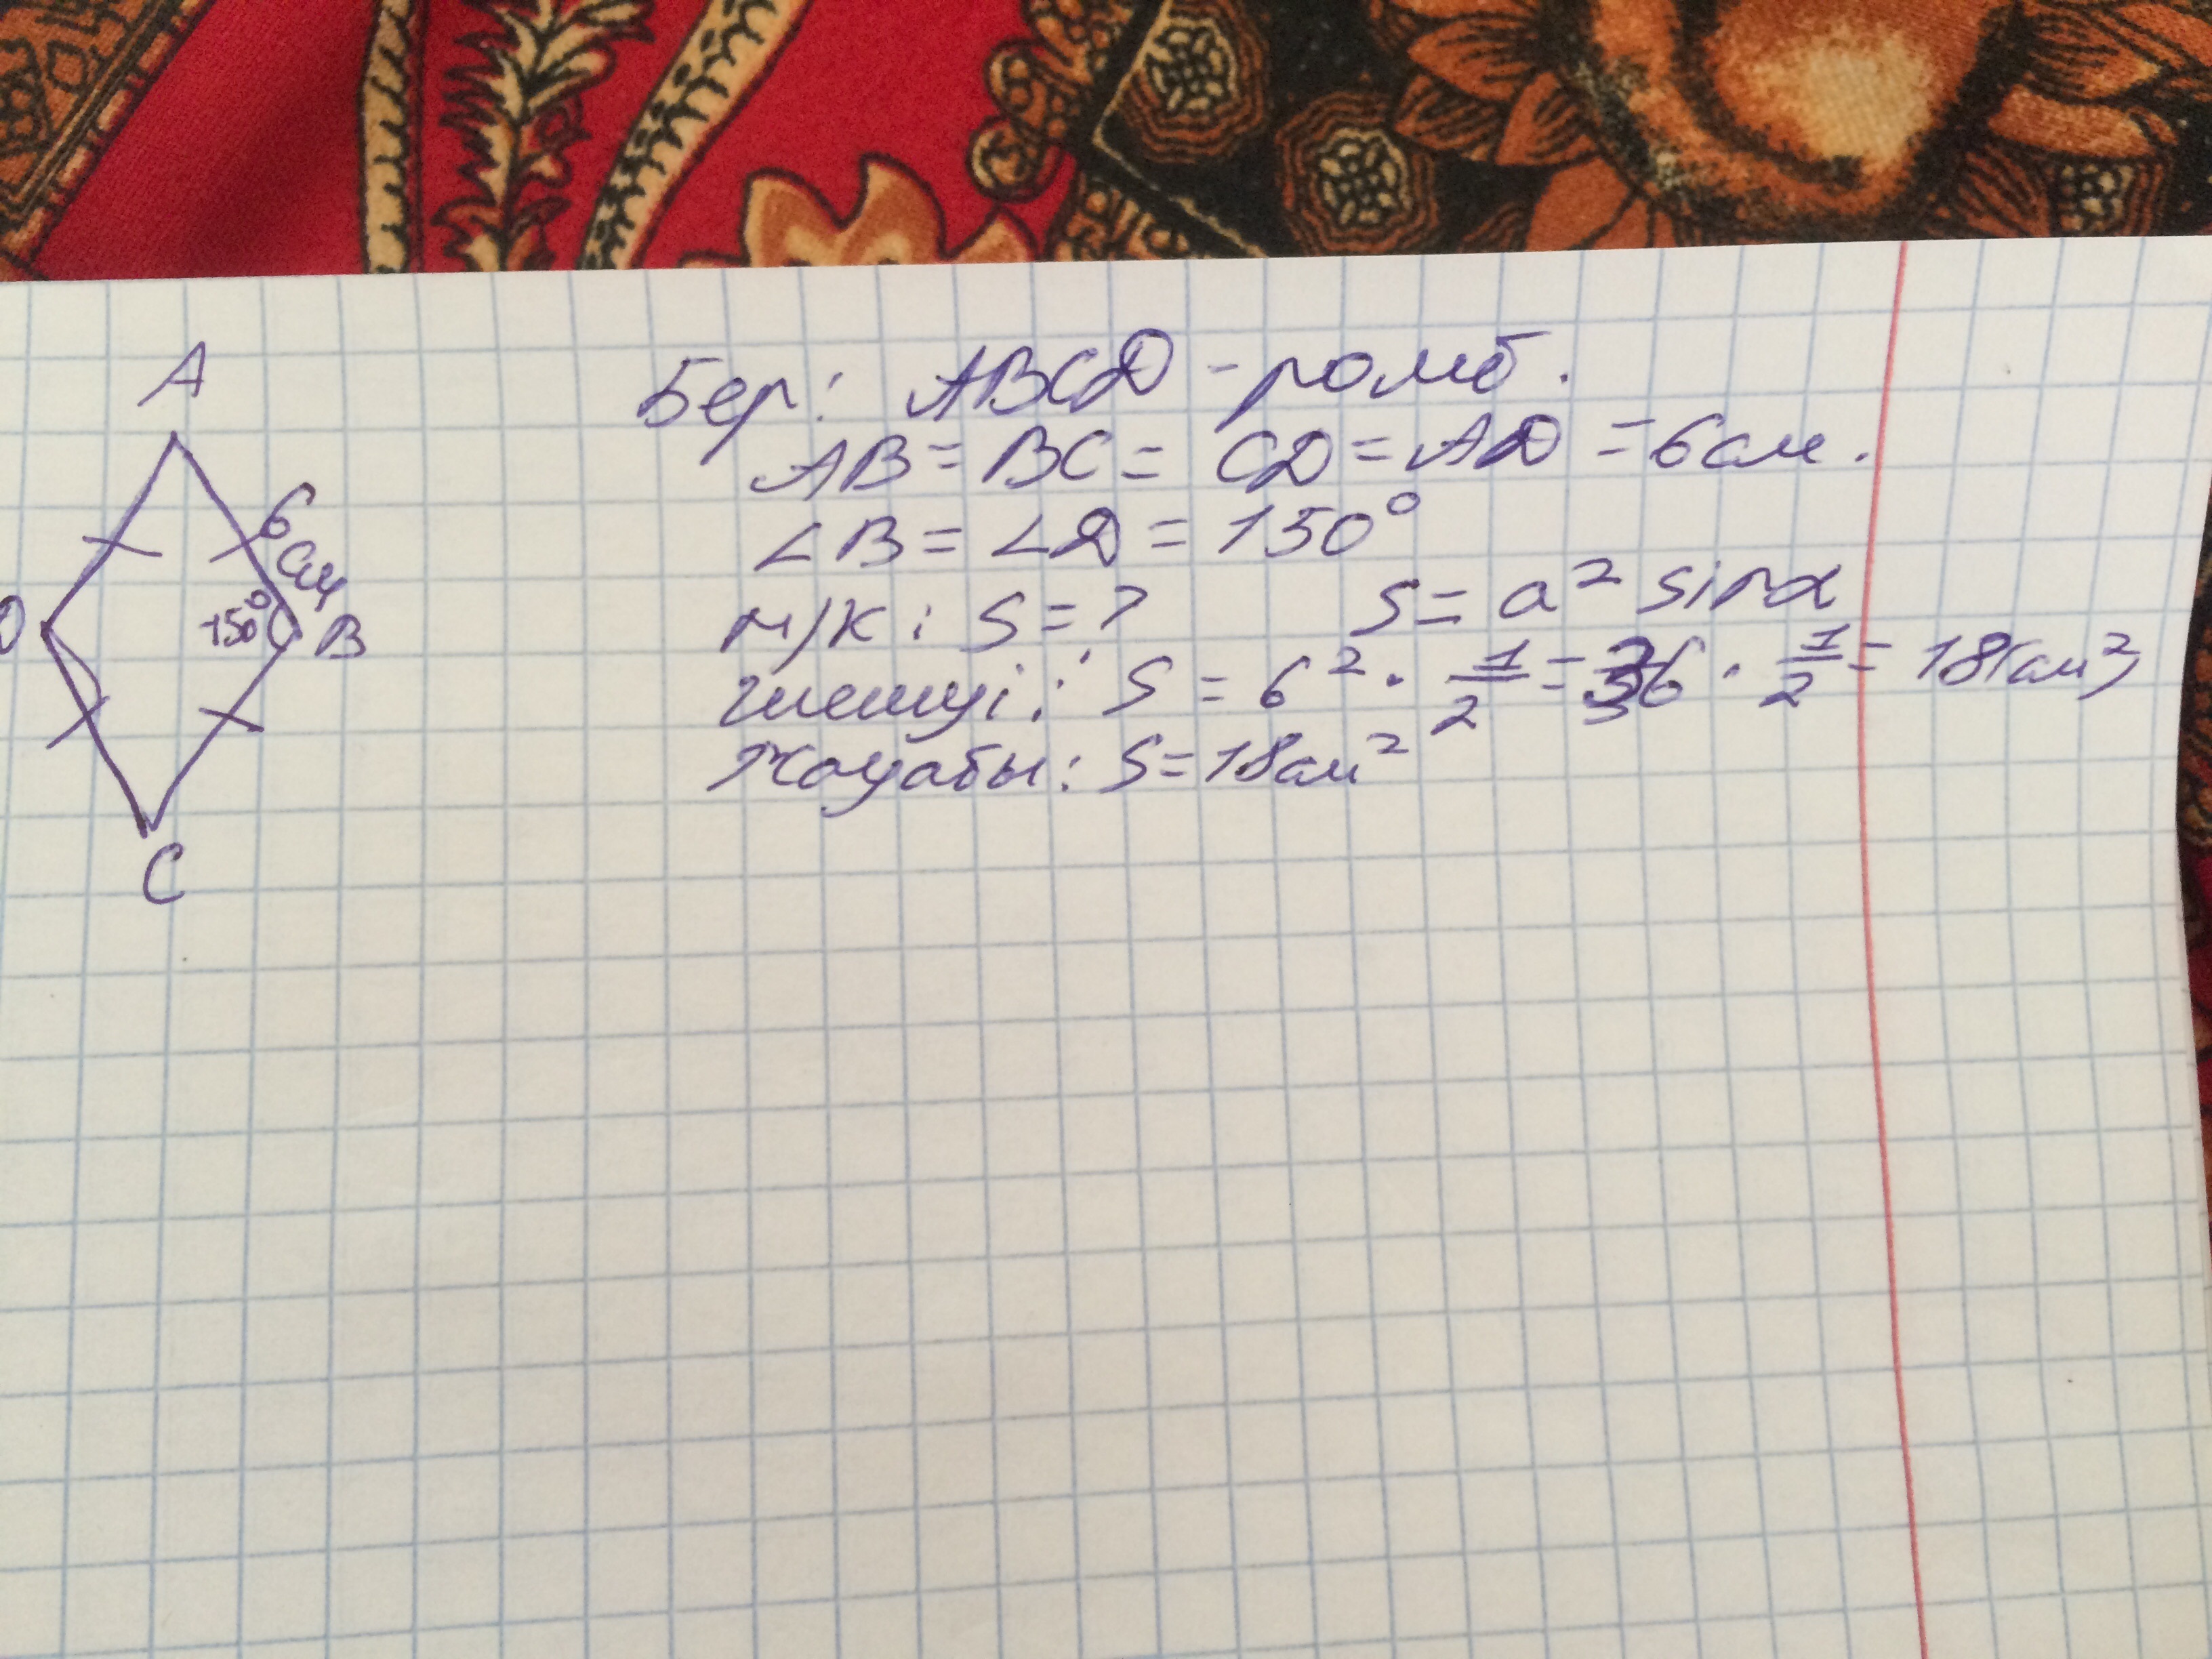 A
6 см
150°
B
D
C
Бер: ABCD - ромб.
AB = BC = CD = AD = 6см.
∠B = ∠D = 150°
м/к: S = ? S = a² sinα
шешуі: S = 6² · 1/2 = 36 · 1/2 = 18(см²)
Жауабы: S = 18см²